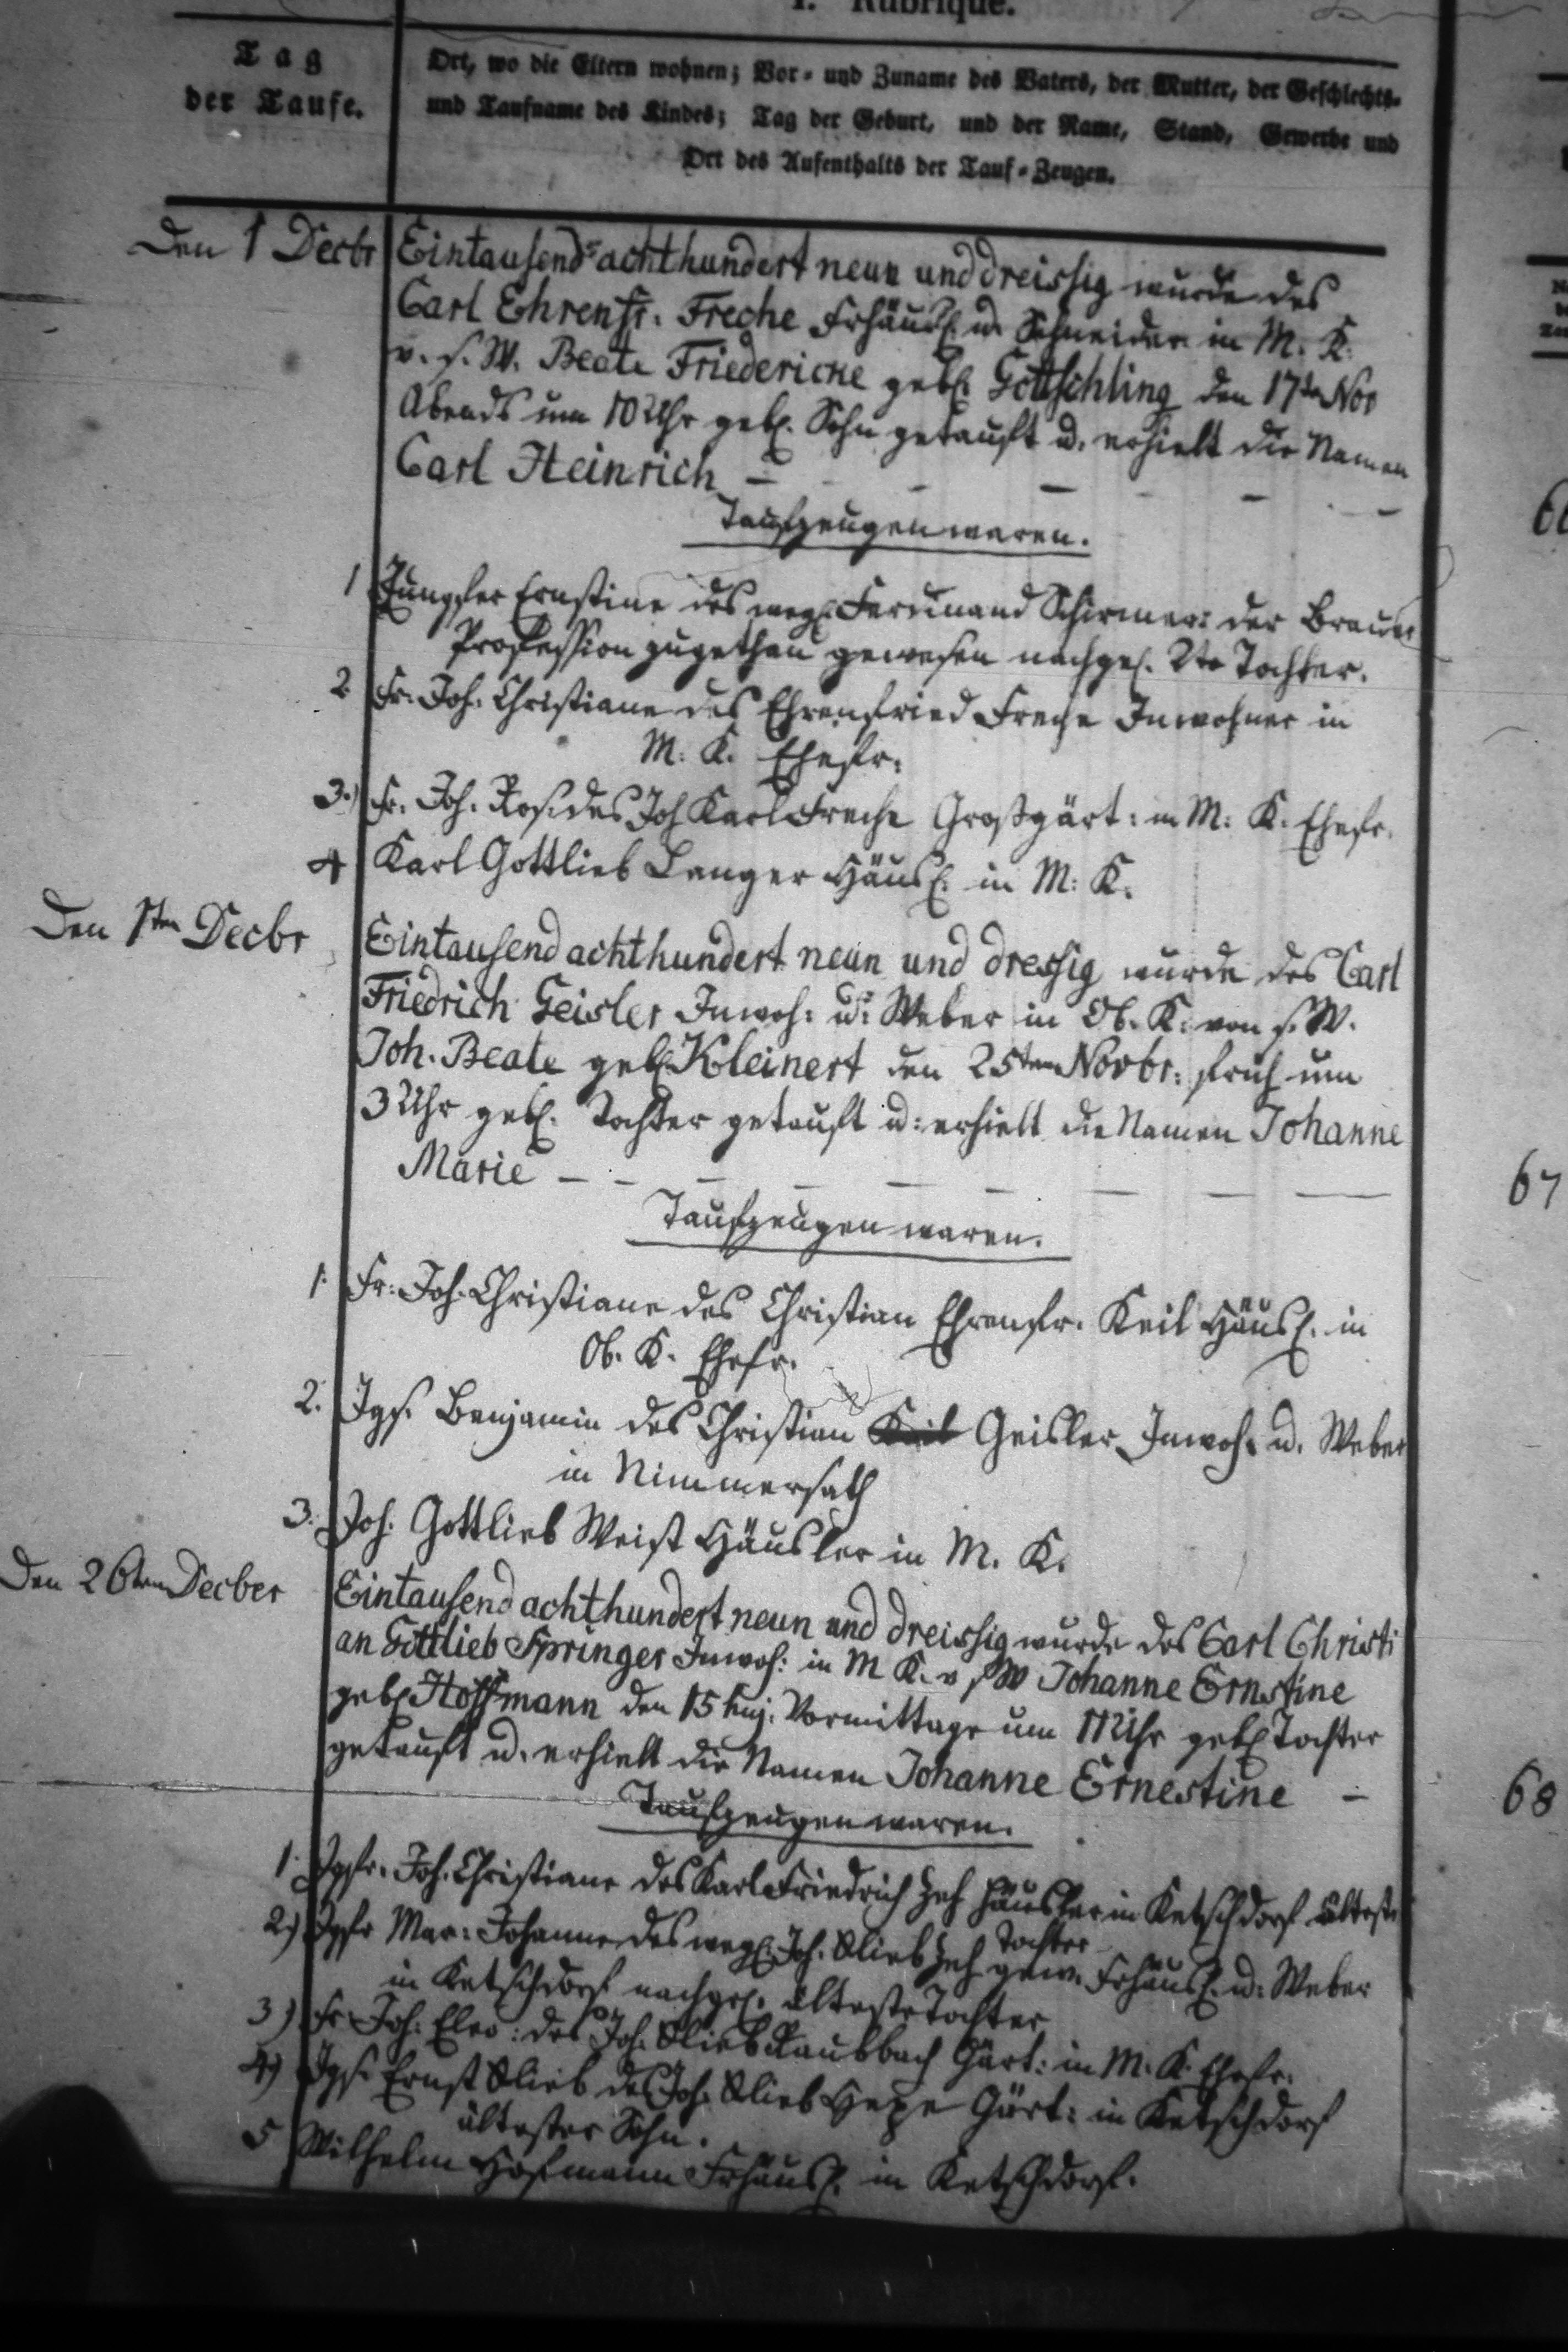 I. Rubrique.
Tag
der Taufe.
Ort, wo die Eltern wohnen; Vor- und Zuname des Vaters, der Mutter, der Geschlechts-
und Taufname des Kindes; Tag der Geburt, und der Name, Stand, Gewerbe und
Ort des Aufenthalts der Tauf-Zeugen.
Den 1 Decbr
Eintausend achthundert neun und dreissig wurde des
Carl Ehrenfr. Freche Frhäusl. u. Schneider in M. K.
v. s. W. Beate Friedericke geb. Gottschling den 17ten Nov
Abends um 10 Uhr geb. Sohn getauft u. erhielt die Namen
Carl Heinrich
Taufzeugen waren.
1 Jungfer Ernstine des weyl. Ferdinand Schirmer: der Brauer
Profession zugethan gewesen nachgel. 2te Tochter.
2 Fr. Joh. Christiane des Ehrenfried Freche Inwohner in
M. K. Ehefr.
3.) Fr. Joh. Ros. des Joh Karl Freche Großgärt: in M: K. Ehefr.
4 Karl Gottlieb Langer Häusl. in M: K.
Den 1ten Decbr
Eintausend achthundert neun und dressig wurde des Carl
Friedrich Geisler Inwoh: u: Weber in Ob. K. von s. W.
Joh. Beate geb. Kleinert den 25ten Novbr. früh um
3 Uhr geb. Tochter getauft u: erhielt die Namen Johanne
Marie
67
Taufzeugen waren.
1. Fr: Joh. Christiane des Christian Ehrenfr. Keil Häusl. in
Ob. K. Ehefr.
2. Jgs. Benjamin des Christian Keil Geisler Inwoh. u. Weber
in Nimmersath
3. Joh. Gottlieb Weist Häusler in M. K.
Den 26ten Decber
Eintausend achthundert neun und dreissig wurde des Carl Christi
an Gottlieb Springer Inwoh: in M K. v s W Johanne Ernstine
geb. Hoffmann den 15 huj. Vormittage um 11 Uhr geb. Tochter
getauft u. erhielt die Namen Johanne Ernestine
68
Taufzeugen waren.
1. Jgfr. Joh. Christiane des Karl Friedrich Zeh Häusler in Ketschdorf älteste
Tochter
2.) Jgfr Mar: Johanne des weyl. Joh. Glieb Zeh gew. Frhäusl. u: Weber
in Ketschdorf nachgel. älteste Tochter
3) Fr Joh: Eleo: des Joh. Glieb Raubbach Gärt: in M. K. Ehefr.
4) Jgs. Ernst Glieb des Joh. Glieb Gärt: in Ketschdorf
ältester Sohn.
5 Wilhelm Hofmann Frhäusl. in Ketschdorf.